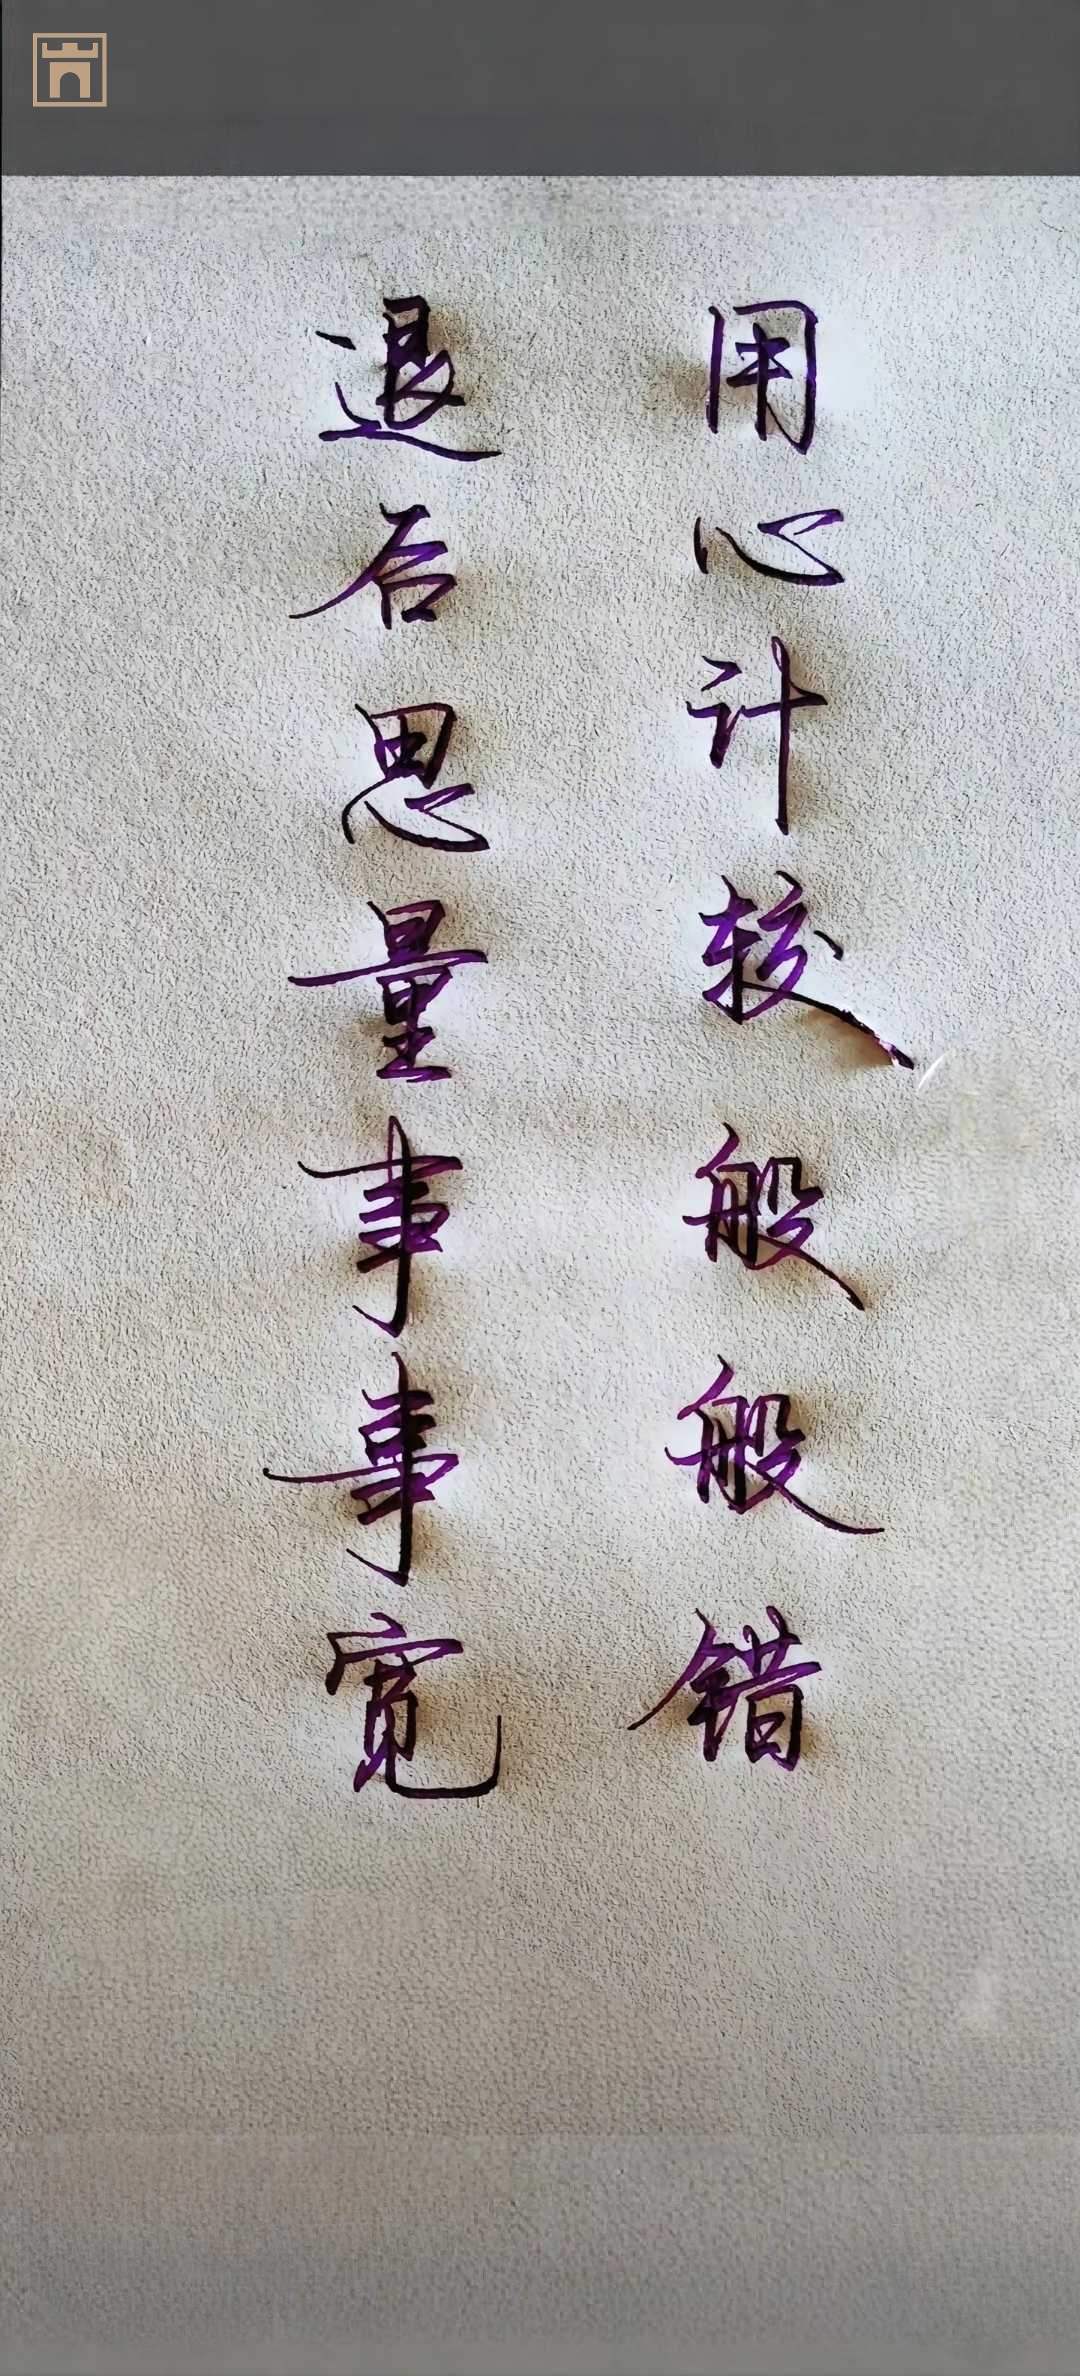 用心计较般般错
退后思量事事宽